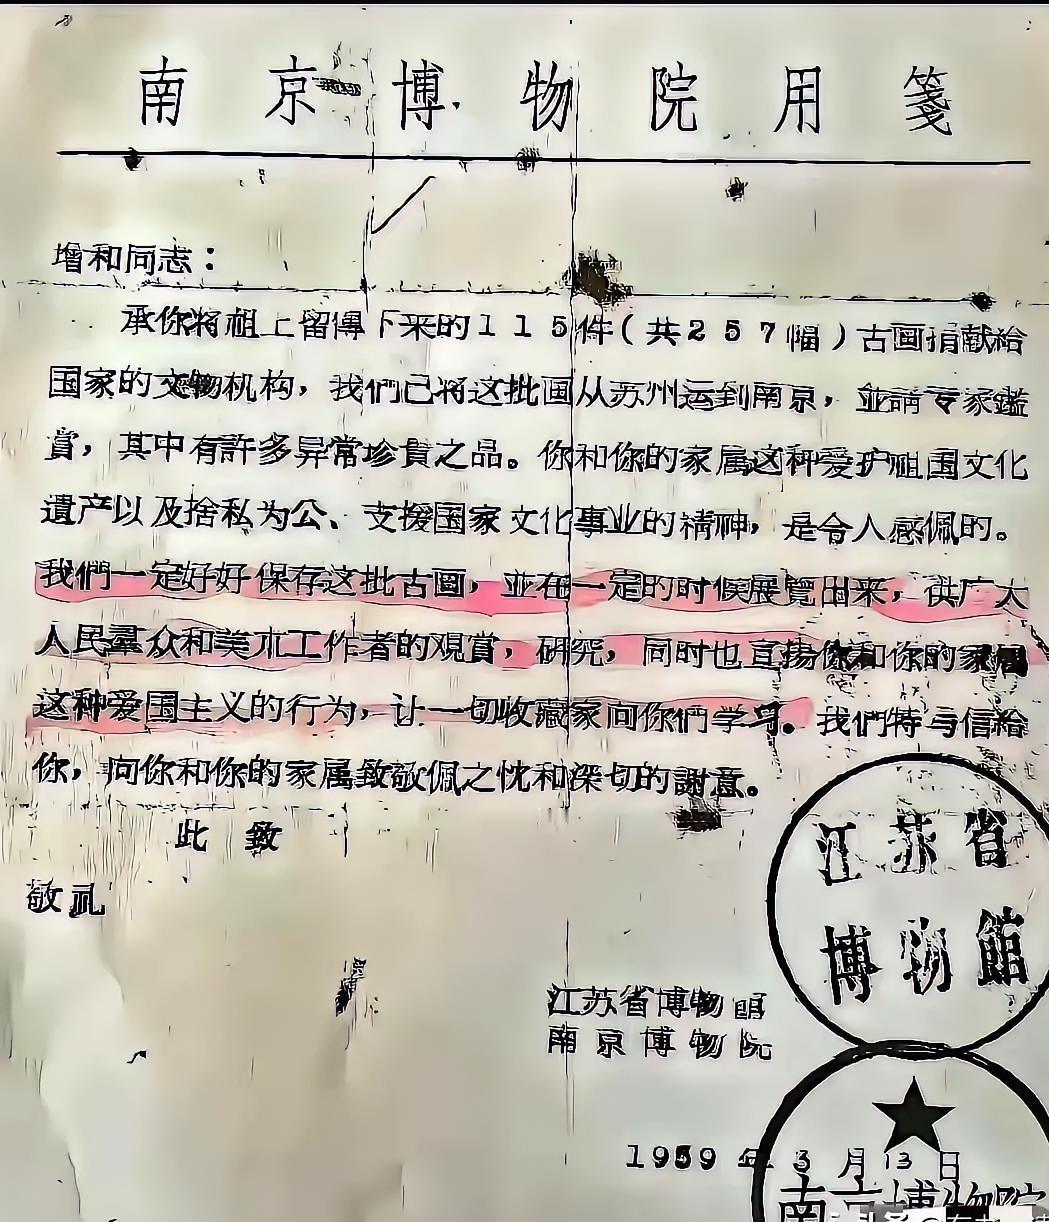 南京博物院用箋
增和同志：
承你将祖上留傳下来的115件（共257幅）古画捐献给
国家的文物机构，我们已将这批画从苏州运到南京，並請专家鑑
賞，其中有許多异常珍貴之品。你和你的家属这种爱护祖国文化
遺产以及捨私为公、支援国家文化事业的精神，是令人感佩的。
我們一定好好保存这批古画，並在一定的时候展覽出来，供广大
人民羣众和美朮工作者的观賞，研究，同时也宣扬你和你的家属
这种爱国主义的行为，让一切收藏家向你們学习。我們特写信給
你，向你和你的家属致敬佩之忱和深切的謝意。
此致
敬礼
江苏省博物館
南京博物院
1959年3月13日
江苏省
博物館
南京博物院